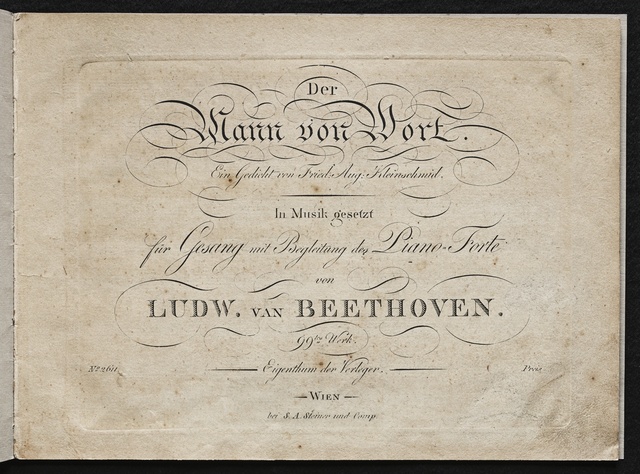 Der
Mann von Wort.
Ein Gedicht von Fried: Aug: Kleinschmid.
In Musik gesetzt
für Gesang mit Begleitung des Piano-Forte
von
LUDW. VAN BEETHOVEN.
99tes Werk.
Nº 2611.
Eigenthum der Verleger.
Preis
WIEN
bei S. A. Steiner und Comp.